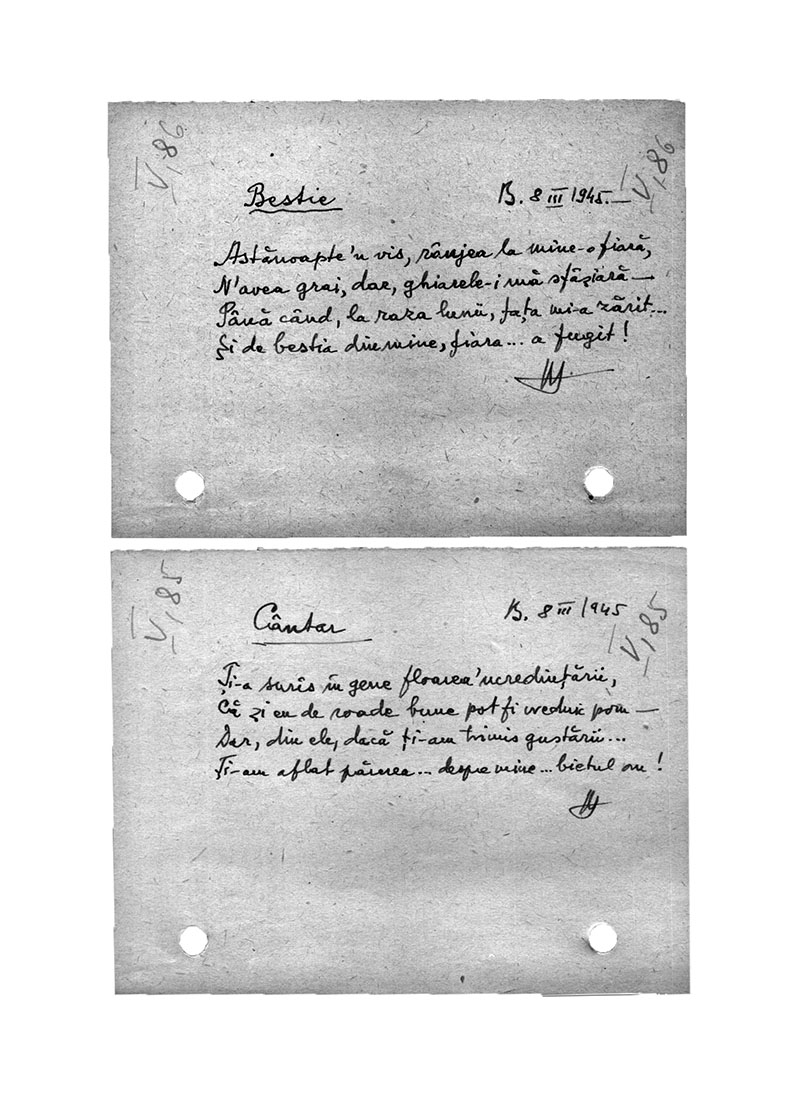 V,86
V,86
Bestie
B. 8 III 1945.—
Astănoapte'n vis, rânjea la mine-o fiară,
N'avea grai, dar, ghiarele-i mă sfâșiară —
Până când, la raza lunii, fața mi-a zărit...
Și de bestia din mine, fiara... a fugit!
V,85
V,85
Cântar
B. 8 III 1945
Ți-a surâs în gene floarea 'ncredințării,
Că și eu de roade bune pot fi vrednic pom —
Dar, din ele, dacă ți-am trimis gustării...
Ți-am aflat părerea... despre mine... bietul om!